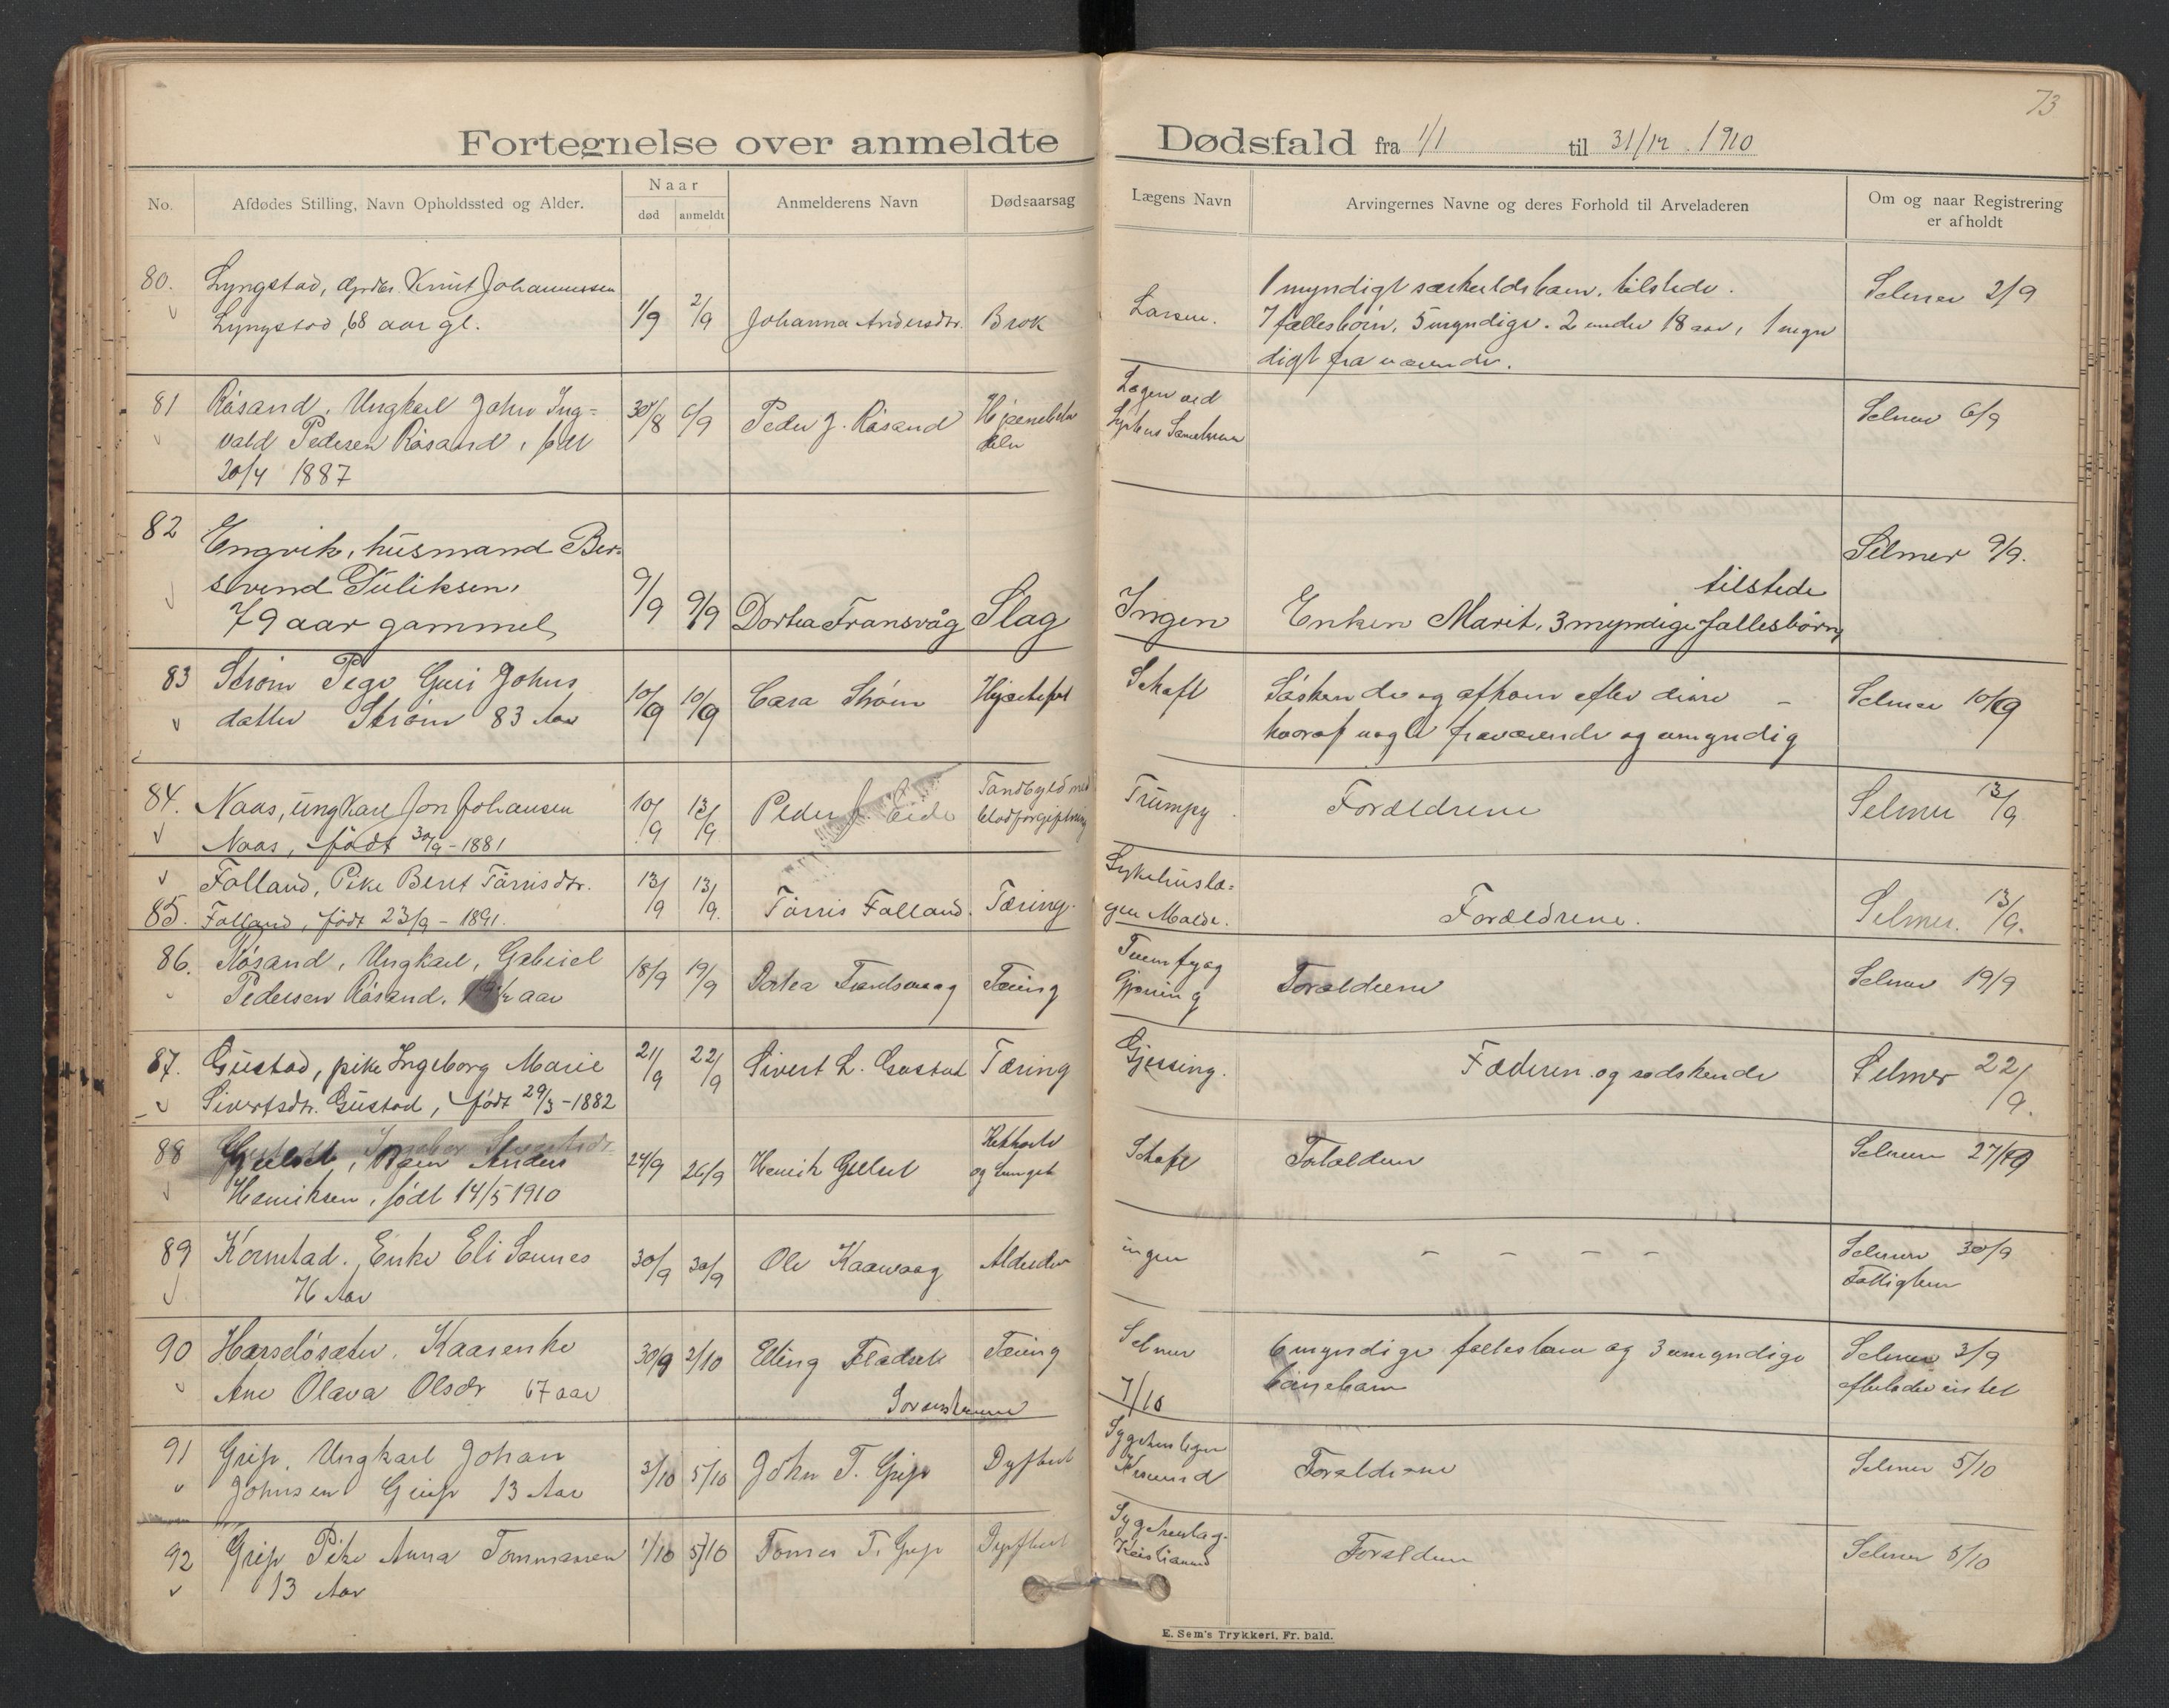 73
Fortegnelse over anmeldte Dødsfald fra 1/1 til 31/12 1910
No. Afdødes Stilling, Navn Opholdssted og Alder. Naar død anmeldt Anmelderens Navn Dødsaarsag Lægens Navn Arvingernes Navne og deres Forhold til Arveladeren Om og naar Registrering er afholdt
80. Lyngstad, Knut Johannessen
Lyngstad, 68 aar gl. 1/9 2/9 Johanna Andersdtr. Brok Larsen.
1 myndigt særkuldsbarn, tilstede.
7 fællesbörn, 5 myndige. 2 under 18 aar, 1 myn
digt fraværende.
Selmer 2/9
81 Råsand, Ungkarl John Ing=
vald Pedersen Råsand, född
20/4 1887 30/8 6/9 Peder J. Råsand Lægen ved
Selmer 6/9
82 Engvik, husmand Ber=
svend Tüliksen,
79 aar gammel 9/9 9/9 Dortea Fransvåg Slag Ingen
tilstede
Enken Marit, 3 myndige fællesbörn
Selmer 9/9.
83 Ström Pige Guri Johns
datter Ström 83 Aar 10/9 10/9 Cara Ström Hjertefeil Schaft
Söskende og afkom efter disse –
hvoraf nogle fraværende og umyndig
Selmer 10/9
84. Naas, ungkarl Jon Johansen
Naas, födt 30/9 – 1881 10/9 13/9 Peder J. Eide Tandbyld med
blodforgiftning Trumpy Forældrene Selmer 13/9
Folland, Pike Berit Törrisdtr.
85. Folland, födt 23/9 – 1891. 13/9 13/9. Törris Folland. Tæring. Sykehuslæ=
gen Molde. Forældrene. Selmer. 13/9.
86. Råsand, Ungkarl, Gabriel
Pedersen Råsand, aar 18/9 19/9 Dortea Tæring
Forældrene Selmer 19/9
87. Gustad, pike Ingeborg Marie
Sivertsdtr. Gustad, födt 29/3 – 1882 21/9 22/9 Sivert L. Gustad Tæring Gjessing. Faderen og södskende Selmer 22/9.
88 Barn Anders
Henriksen, födt 14/5 1910 24/9 26/9 Henrik Kikhoste
og Lunget Schaft Forældrene Selmer 27/9
89 Kornstad. Enke Eli Sannes
Aar 30/9 30/9 Ole Kaarvaag Alderdom ingen – – – – Selmer 30/9
Fattiglem
90 Harselösæter, Kaarenke
Ane Olava Olsdr 67 aar 30/9 2/10 Elling Tæring Selmer
7/10
6 myndige fællesbarn og 3 umyndige
barnebarn
Selmer 3/9
91 Grip, Ungkarl Johan
Johnsen Grip 13 Aar 3/10 5/10 John T. Grip Dyfteri Forældrene Selmer 5/10
92 Grip Pike Anna Tommassen
13 Aar 1/10 5/10 Tomas T. Grip Dyfteri Sygehuslæg.
Kristiansund Forældrene Selmer 5/10
E. Sem's Trykkeri, Fr. hald.